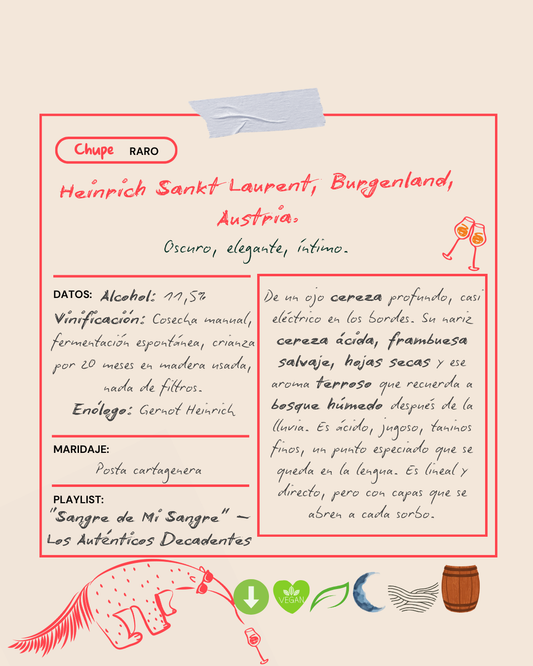 Chupe RARO
Heinrich Sankt Laurent, Burgenland,
Austria.
Oscuro, elegante, íntimo.
DATOS: Alcohol: 11,5%
Vinificación: Cosecha manual,
fermentación espontánea, crianza
por 20 meses en madera usada,
nada de filtros.
Enólogo: Gernot Heinrich
MARIDAJE:
Posta cartagenera
PLAYLIST:
"Sangre de Mi Sangre" –
Los Auténticos Decadentes
De un ojo cereza profundo, casi
eléctrico en los bordes. Su nariz
cereza ácida, frambuesa
salvaje, hojas secas y ese
aroma terroso que recuerda a
bosque húmedo después de la
lluvia. Es ácido, jugoso, taninos
finos, un punto especiado que se
queda en la lengua. Es lineal y
directo, pero con capas que se
abren a cada sorbo.
VEGAN